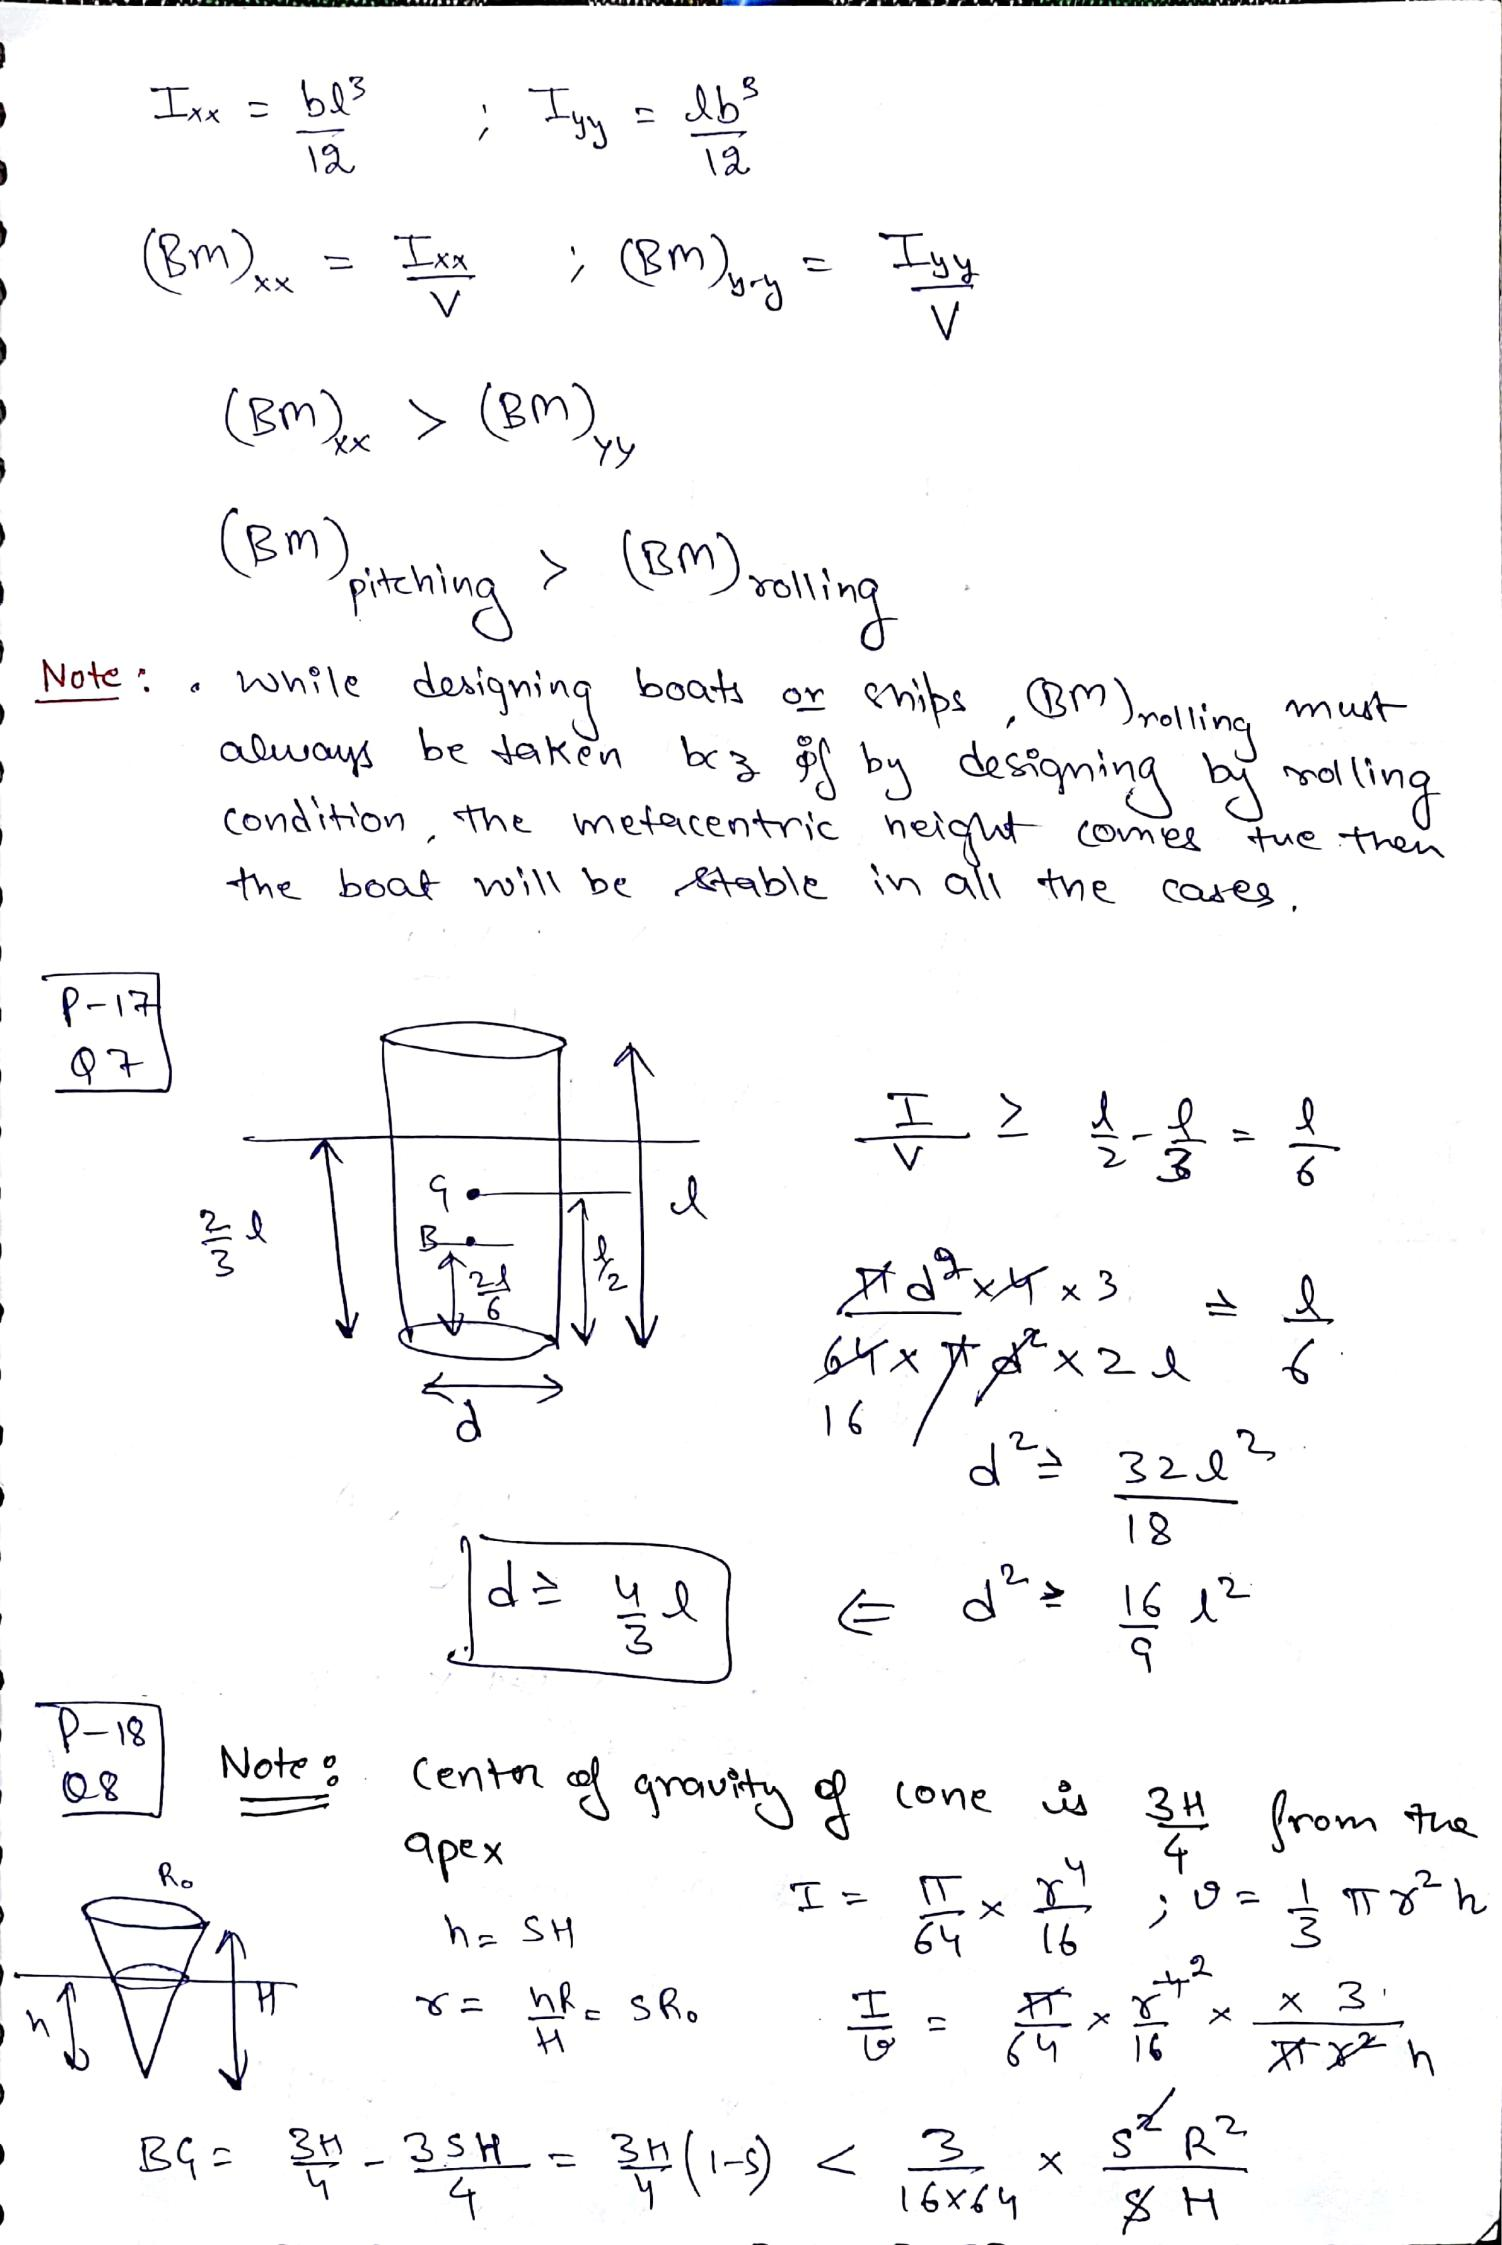 Ixx = bl³/12 ; Iyy = lb³/12
(BM)xx = Ixx/V ; (BM)y-y = Iyy/V
(BM)xx > (BM)yy
(BM)pitching > (BM)rolling
Note : • While designing boats or ships , (BM)rolling must
always be taken bcz if by designing by rolling
condition, the metacentric height comes +ve then
the boat will be stable in all the cases.
P-17
Q7
I/V ≥ l/2 - l/3 = l/6
2/3 l
G
B
2l/6
l/2
l
d
πd⁴ × 4 × 3 / 64 × πd² × 2l ≥ l/6
16
d² ≥ 32l²/18
d ≥ 4/3 l ⇐ d² ≥ 16/9 l²
P-18
Q8
Note : Center of gravity of cone is 3H/4 from the
apex
R₀
h
H
h = SH
I = π/64 × r⁴/16 ; v = 1/3 πr²h
r = hR/H = SR₀
I/v = π/64 × r⁴ ²/16 × × 3/πr²h
BG = 3H/4 - 3SH/4 = 3H/4 (1-S) < 3/16×64 × S²R²/SH